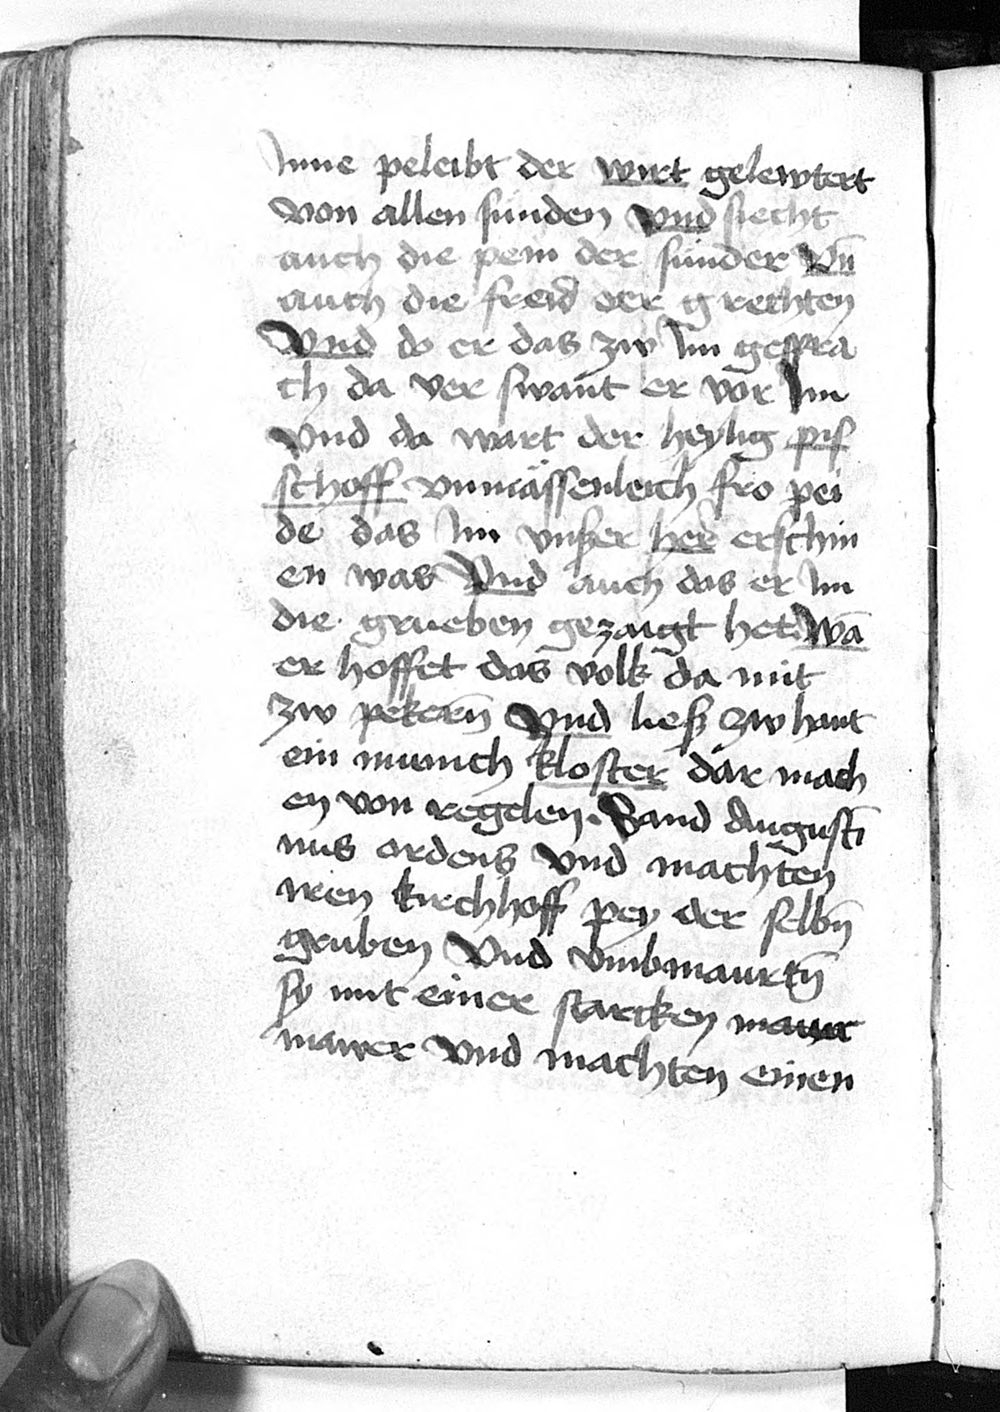 Inne peleibt der wirt gelewtert
von allen sunden vnd siecht
auch die pein der sunder vn̄
auch die freid der grechten
Vnd do er das zw Im gespra
ch da ver swant er vor Im
vnd da wart der heylig pis
schoff vnmässenleich fro pei
de das Im vnßer her erschin
en was Vnd auch das er Im
die grueben gezaigt het. Wā
er hoffet das volk da mit
zw pekern̄ Vnd ließ zw hant
ein munich kloster dar mach
en von regelen. Sand Augusti
nus ordens Vnd machten
iren kirchhoff pey der selbn̄
gruben Vnd vmbmaurtn̄
sy mit einer starcken maur
mawer vnd machten einen